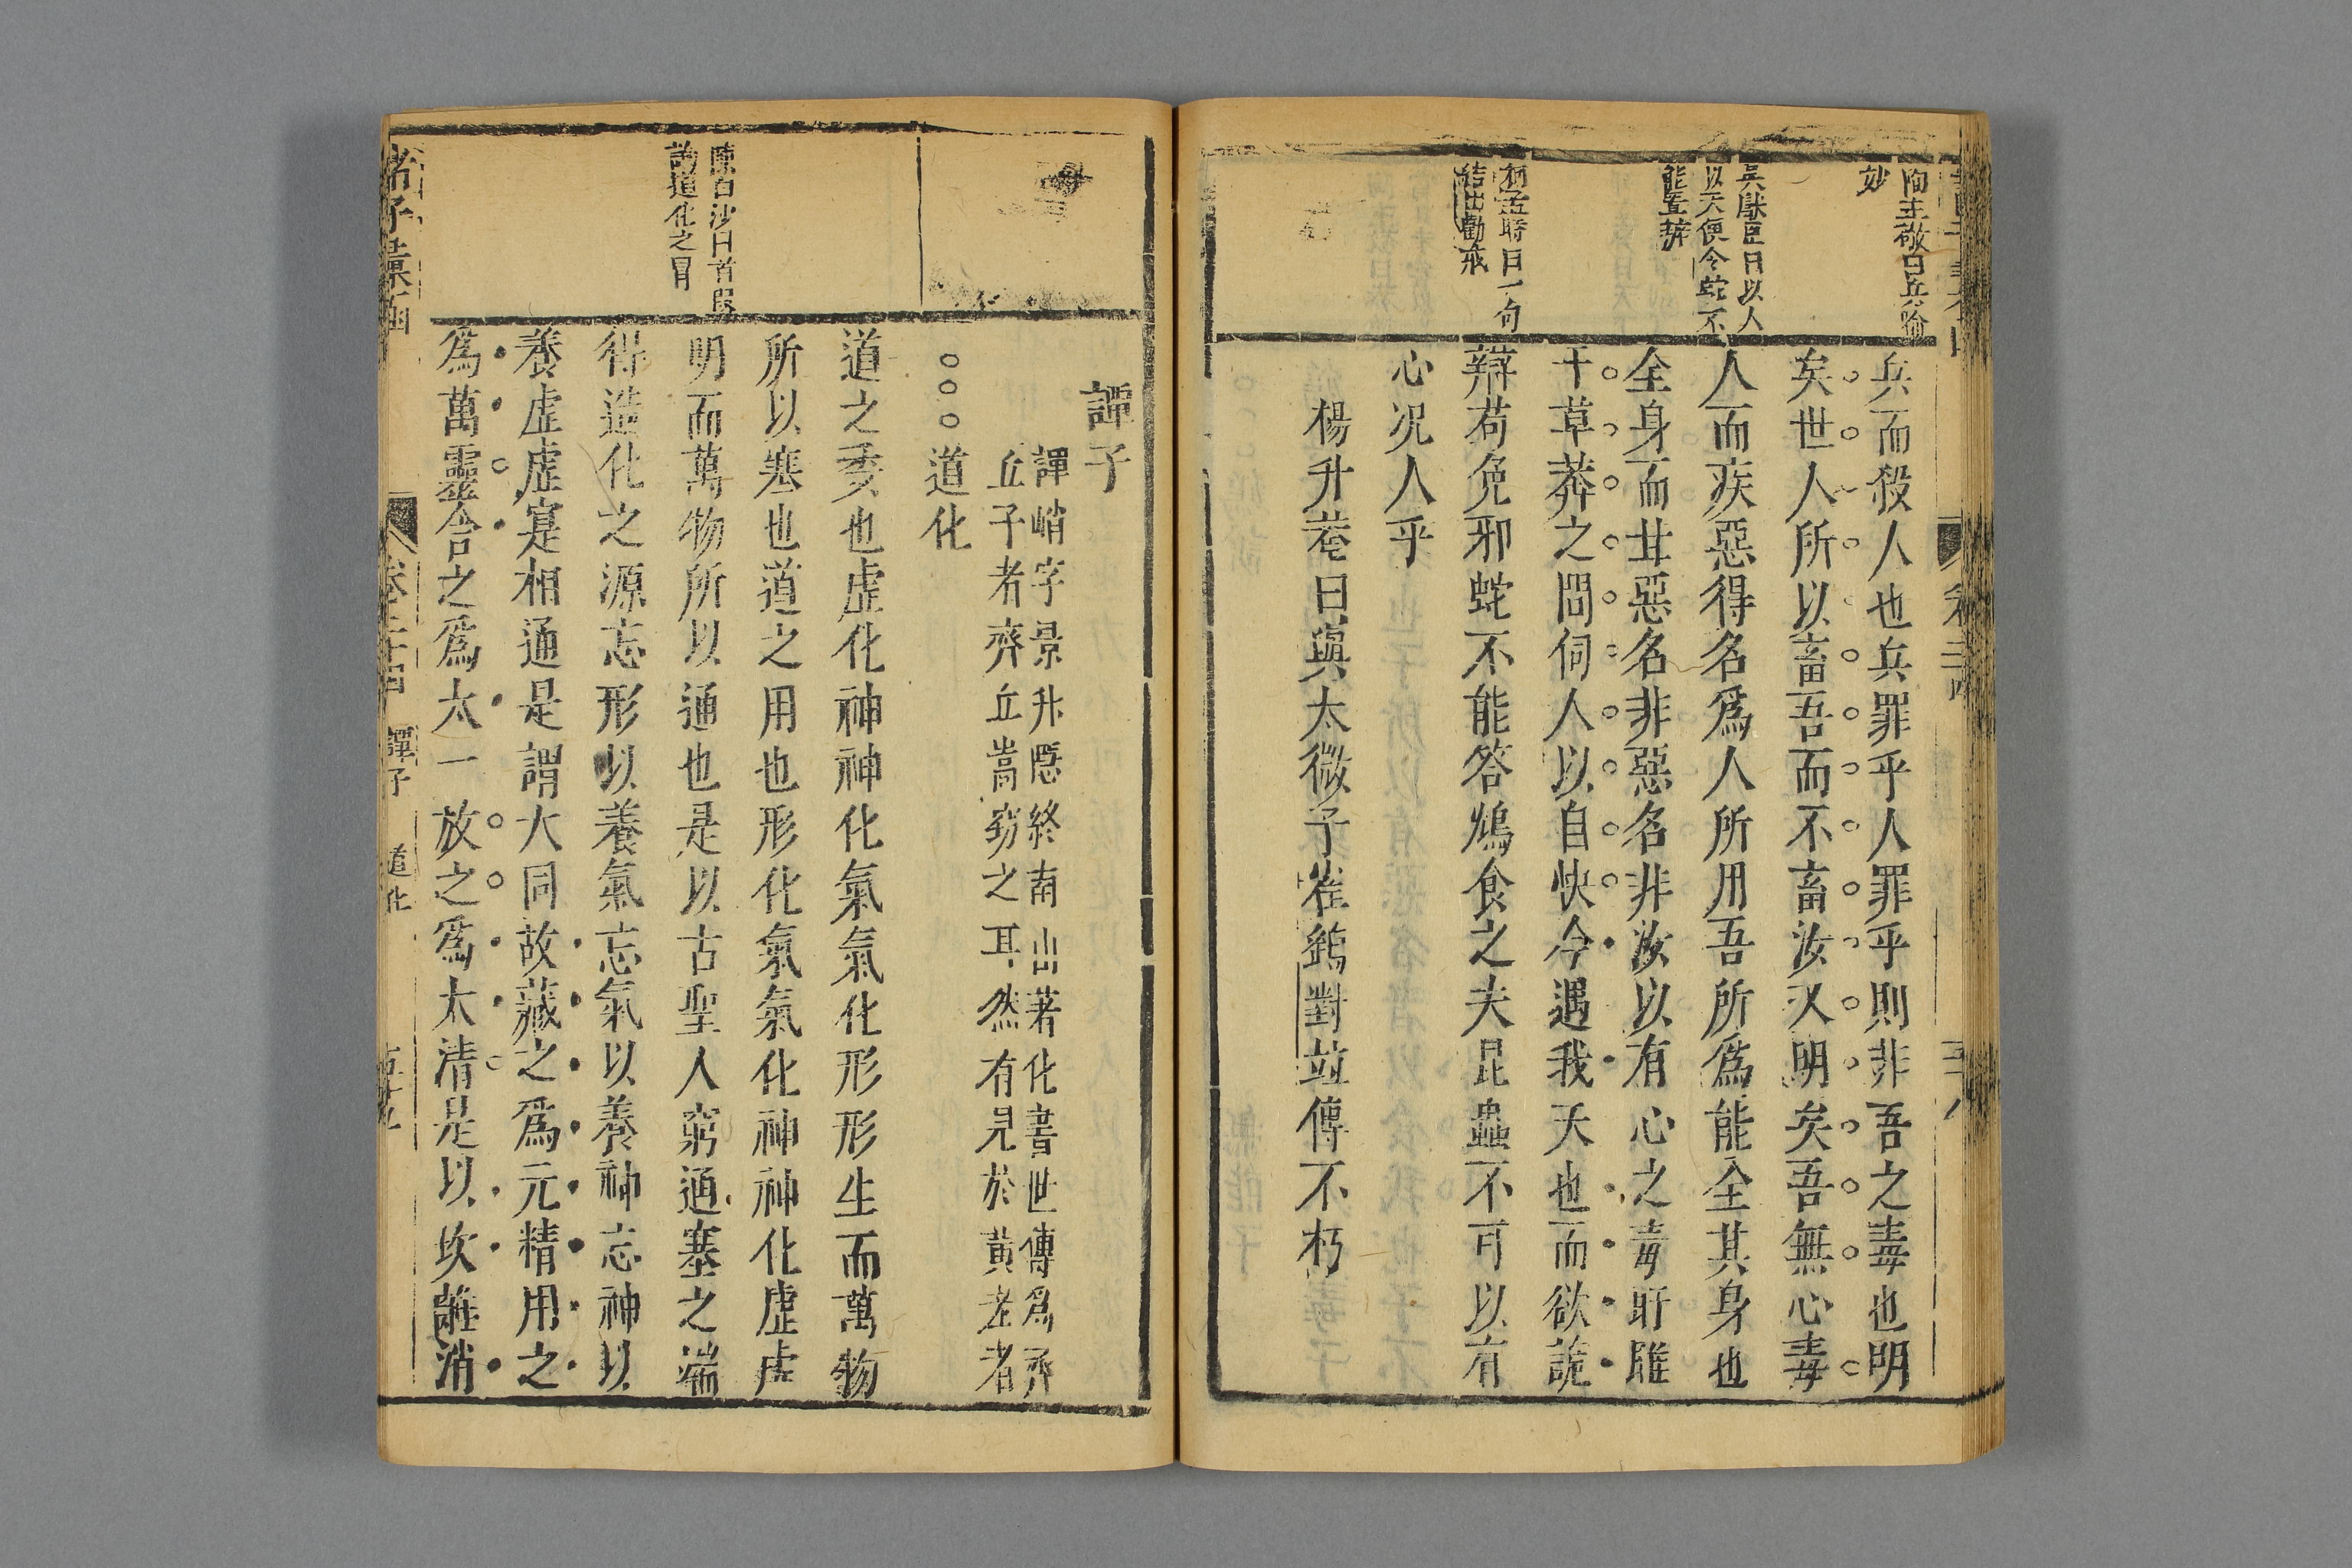 陶主敬曰兵喻
妙
吳獻臣曰以人
以天便令蛇不
能置辭
柯孟時曰一句
結出勸戒
兵而殺人也兵罪乎人罪乎則非吾之毒也明
矣世人所以畜吾而不畜汝又明矣吾無心毒
人而疾惡得名爲人所用吾所爲能全其身也
全身而甘惡名非惡名非汝以有心之毒盱睢
于草莽之間伺人以自快今遇我天也而欲詭
辯苟免邪蛇不能答鴆食之夫昆蟲不可以有
心况人乎
楊升菴曰與太微子雀鷂對竝傳不朽
陳白沙曰首叚
道化之冒
譚子
譚峭字景升隱終南山著化書世傳爲齊
丘子者齊丘嵩窃之耳然有見於黃老者
道化
道之委也虛化神神化氣氣化形形生而萬物
所以塞也道之用也形化氣氣化神神化虛虛
明而萬物所以通也是以古聖人窮通塞之端
得造化之源忘形以養氣忘氣以養神忘神以
養虛虛寔相通是謂大同故藏之爲元精用之
爲萬靈合之爲太一放之爲太清是以坎離消
譚子
道化